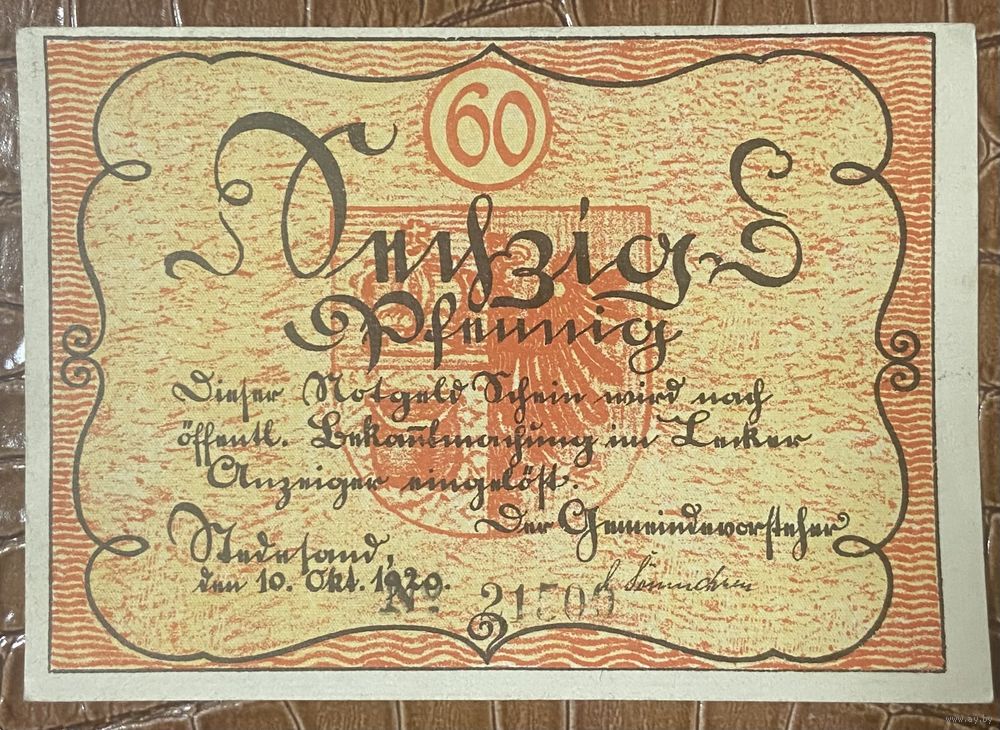 60
Sechzig
Pfennig
Dieser Notgeld Schein wird nach
öffentl. Bekanntmachung im Lecker
Anzeiger eingelöst.
Der Gemeindevorsteher
Stedesand,
den 10. Okt. 1920.
No 21505
www.ay.by